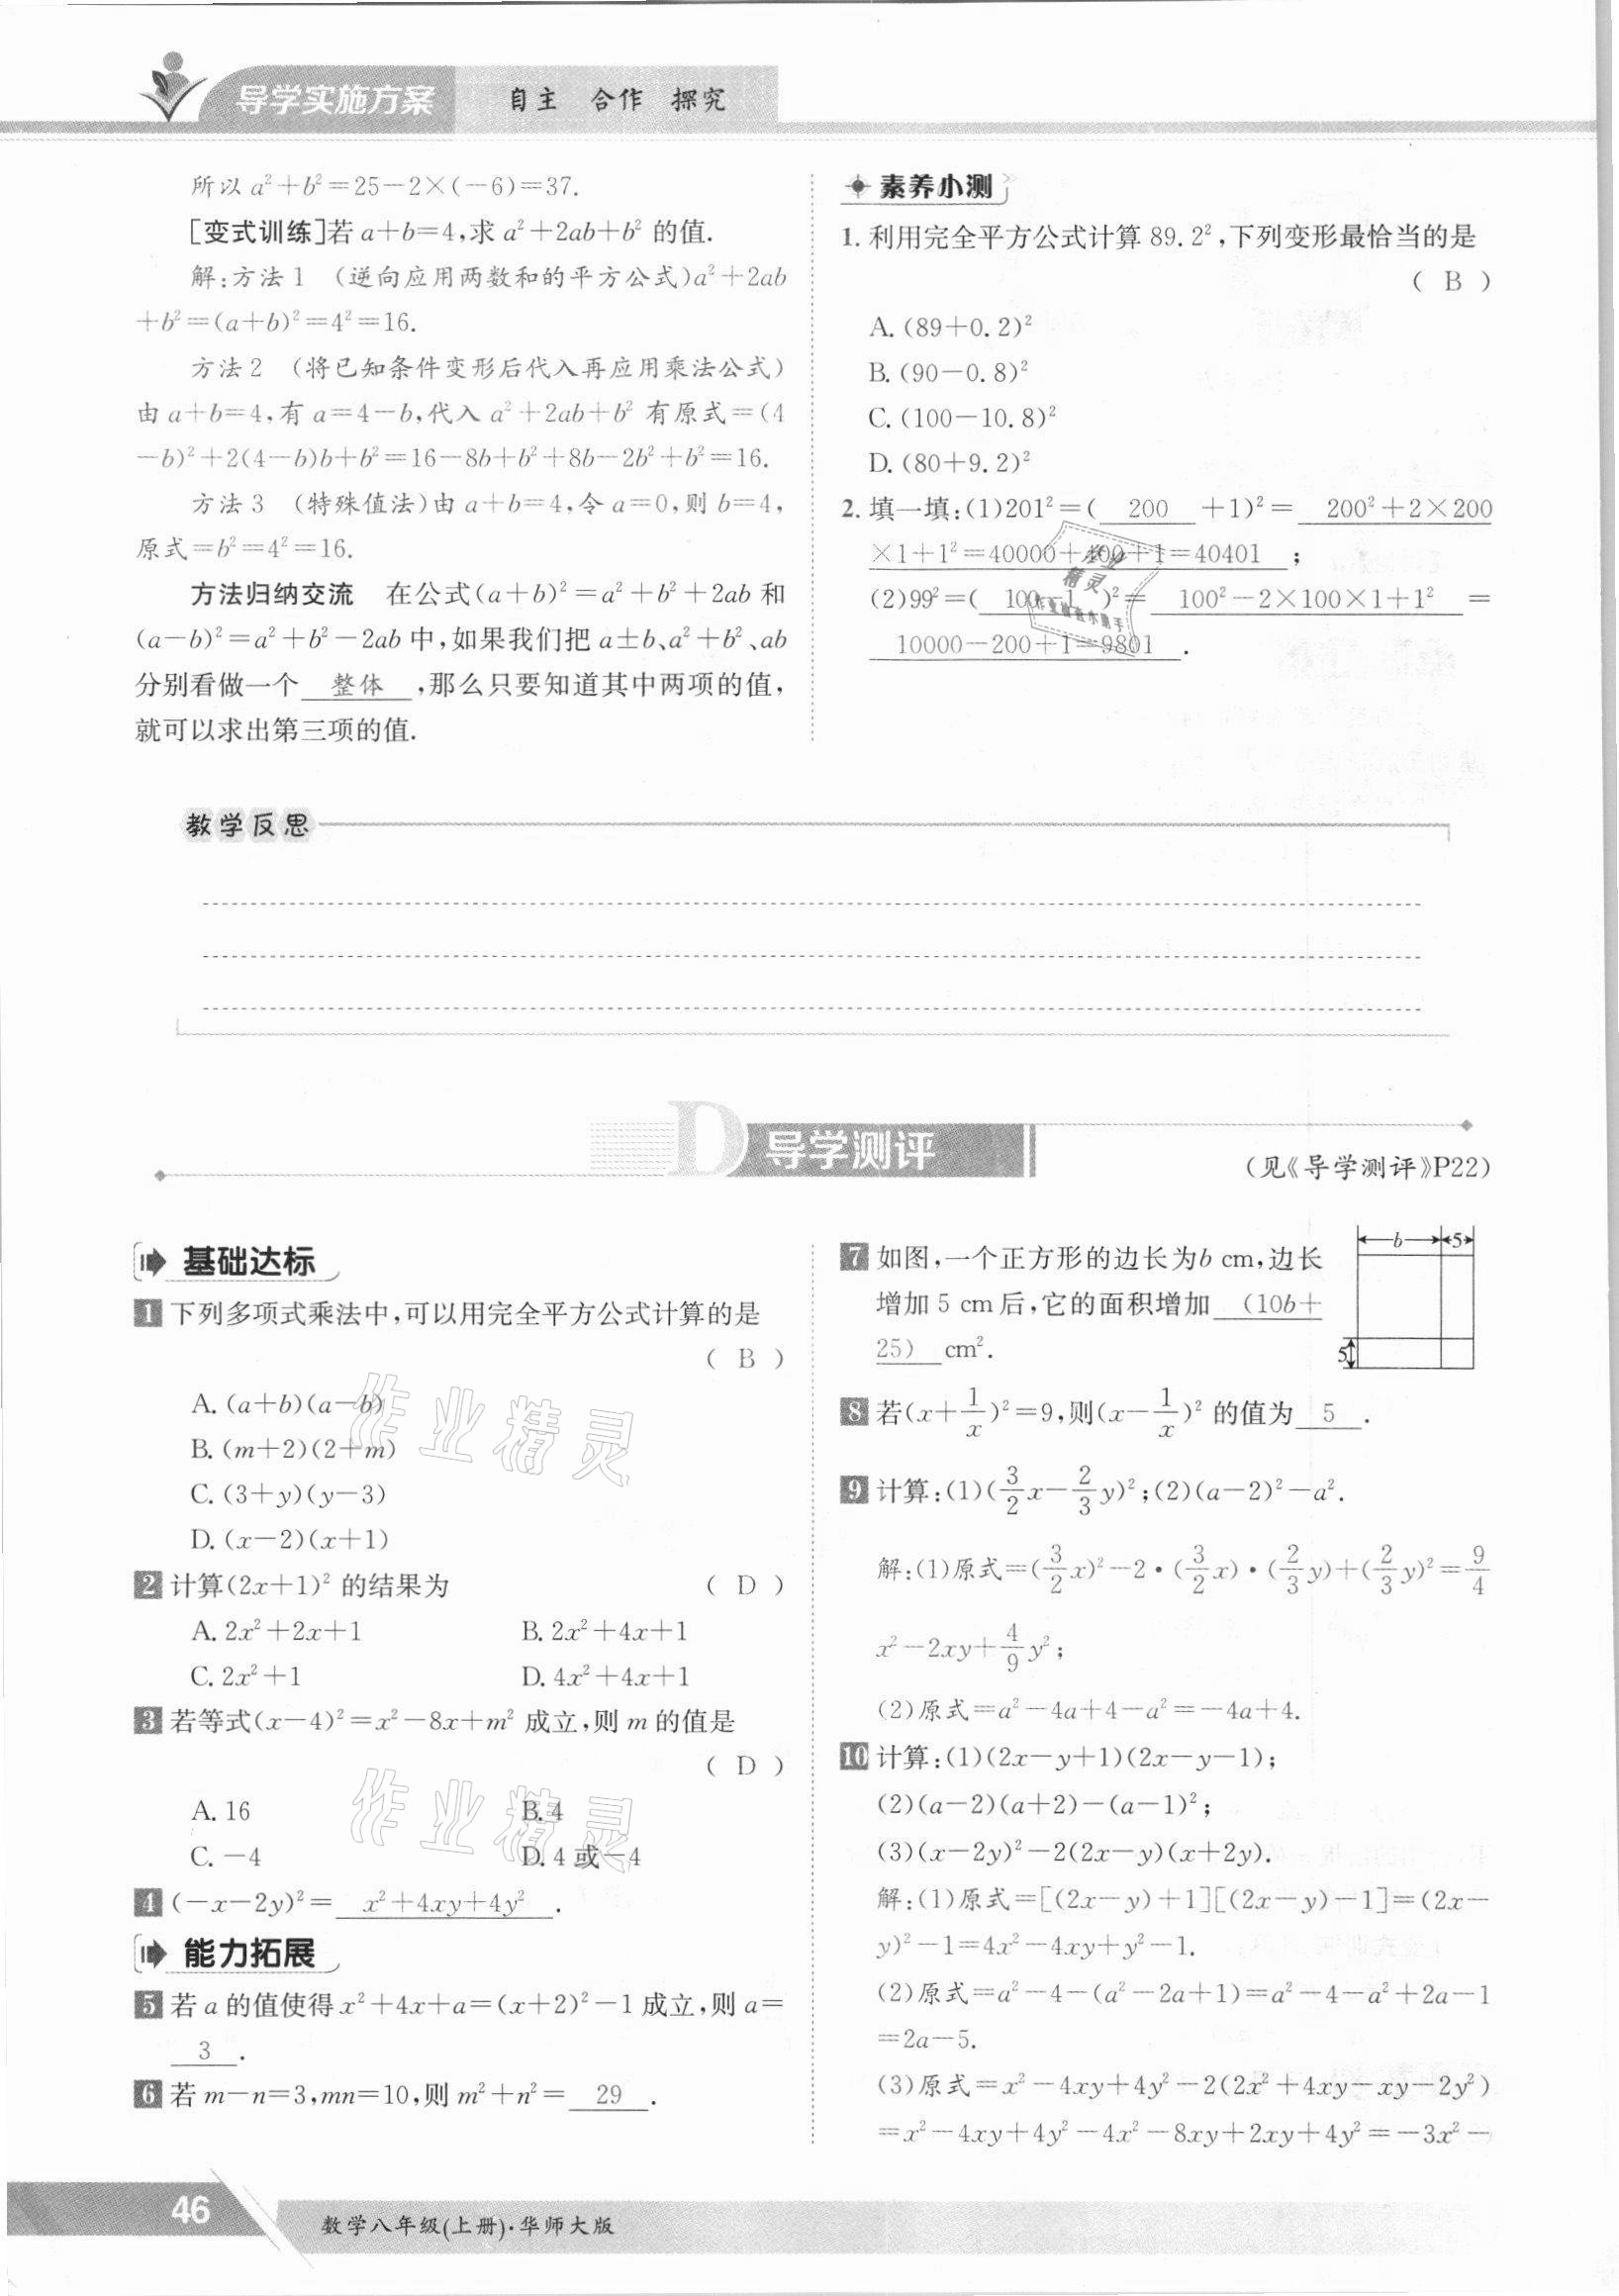 导学实施方案 自主 合作 探究
所以 a²+b²=25-2×(-6)=37.
[变式训练]若 a+b=4,求 a²+2ab+b² 的值.
解:方法 1 (逆向应用两数和的平方公式)a²+2ab
+b²=(a+b)²=4²=16.
方法 2 (将已知条件变形后代入再应用乘法公式)
由 a+b=4,有 a=4-b,代入 a²+2ab+b² 有原式=(4
-b)²+2(4-b)b+b²=16-8b+b²+8b-2b²+b²=16.
方法 3 (特殊值法)由 a+b=4,令 a=0,则 b=4,
原式=b²=4²=16.
方法归纳交流 在公式(a+b)²=a²+b²+2ab 和
(a-b)²=a²+b²-2ab 中,如果我们把 a±b、a²+b²、ab
分别看做一个 整体 ,那么只要知道其中两项的值,
就可以求出第三项的值.
素养小测
1. 利用完全平方公式计算 89.2²,下列变形最恰当的是
( B )
A. (89+0.2)²
B. (90-0.8)²
C. (100-10.8)²
D. (80+9.2)²
2. 填一填:(1)201²=( 200 +1)²= 200²+2×200
×1+1²=40000+400+1=40401 ;
(2)99²=( 100-1 )²= 100²-2×100×1+1² =
10000-200+1=9801 .
教学反思
D 导学测评
(见《导学测评》P22)
基础达标
1 下列多项式乘法中,可以用完全平方公式计算的是
( B )
A. (a+b)(a-b)
B. (m+2)(2+m)
C. (3+y)(y-3)
D. (x-2)(x+1)
2 计算(2x+1)² 的结果为 ( D )
A. 2x²+2x+1 B. 2x²+4x+1
C. 2x²+1 D. 4x²+4x+1
3 若等式(x-4)²=x²-8x+m² 成立,则 m 的值是
( D )
A. 16 B. 4
C. -4 D. 4 或-4
4 (-x-2y)²= x²+4xy+4y² .
能力拓展
5 若 a 的值使得 x²+4x+a=(x+2)²-1 成立,则 a=
3 .
6 若 m-n=3,mn=10,则 m²+n²= 29 .
7 如图,一个正方形的边长为b cm,边长
增加 5 cm 后,它的面积增加 (10b+
25) cm².
b 5
5
8 若(x+1/x)²=9,则(x-1/x)² 的值为 5 .
9 计算:(1)(3/2x-2/3y)²;(2)(a-2)²-a².
解:(1)原式=(3/2x)²-2·(3/2x)·(2/3y)+(2/3y)²=9/4
x²-2xy+4/9y²;
(2)原式=a²-4a+4-a²=-4a+4.
10 计算:(1)(2x-y+1)(2x-y-1);
(2)(a-2)(a+2)-(a-1)²;
(3)(x-2y)²-2(2x-y)(x+2y).
解:(1)原式=[(2x-y)+1][(2x-y)-1]=(2x-
y)²-1=4x²-4xy+y²-1.
(2)原式=a²-4-(a²-2a+1)=a²-4-a²+2a-1
=2a-5.
(3)原式=x²-4xy+4y²-2(2x²+4xy-xy-2y²)
=x²-4xy+4y²-4x²-8xy+2xy+4y²=-3x²-
46 数学八年级(上册)·华师大版
作业精灵
作业精灵
作业
精灵